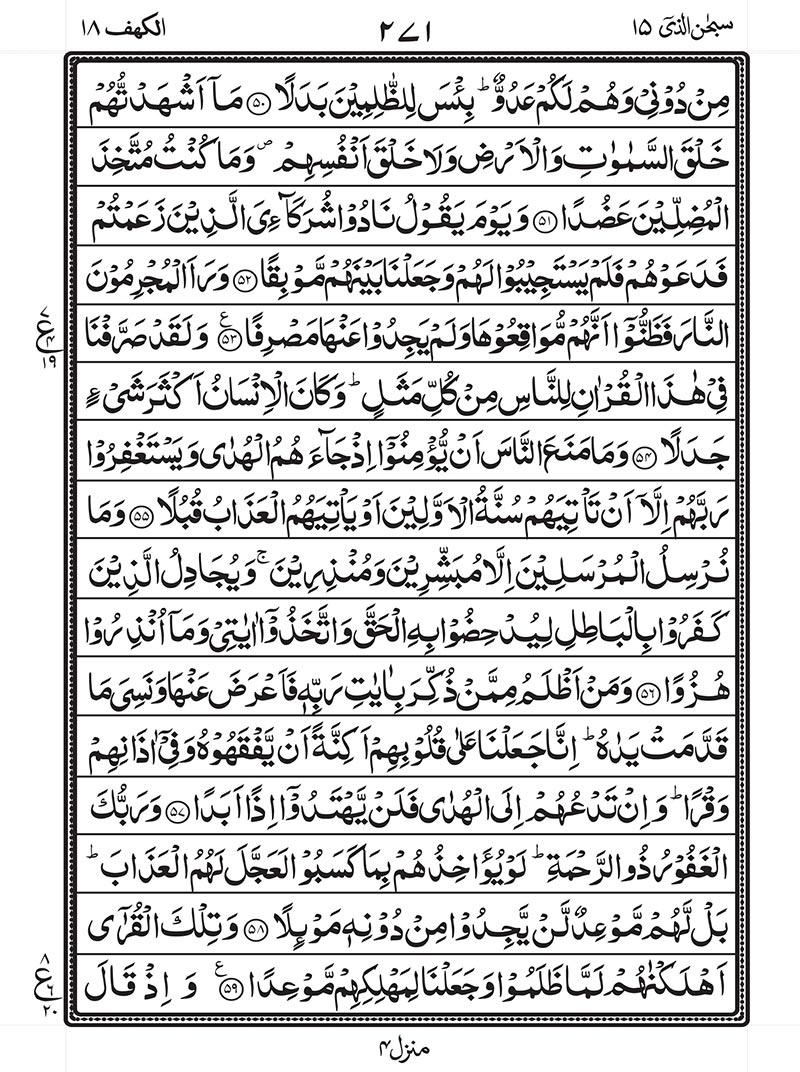 سبحٰن الذیٓ ۱۵
۲۷۱
الكهف ۱۸
مِنْ دُوْنِیْ وَهُمْ لَكُمْ عَدُوٌّ ؕ بِئْسَ لِلظّٰلِمِیْنَ بَدَلًا ﴿۵۰﴾ مَاۤ اَشْهَدْتُّهُمْ
خَلْقَ السَّمٰوٰتِ وَالْاَرْضِ وَلَا خَلْقَ اَنْفُسِهِمْ ۪ وَمَا كُنْتُ مُتَّخِذَ
الْمُضِلِّیْنَ عَضُدًا ﴿۵۱﴾ وَیَوْمَ یَقُوْلُ نَادُوْا شُرَكَآءِیَ الَّذِیْنَ زَعَمْتُمْ
فَدَعَوْهُمْ فَلَمْ یَسْتَجِیْبُوْا لَهُمْ وَجَعَلْنَا بَیْنَهُمْ مَّوْبِقًا ﴿۵۲﴾ وَرَاَ الْمُجْرِمُوْنَ
النَّارَ فَظَنُّوْۤا اَنَّهُمْ مُّوَاقِعُوْهَا وَلَمْ یَجِدُوْا عَنْهَا مَصْرِفًا ﴿۵۳﴾ ع وَلَقَدْ صَرَّفْنَا
۷ ع ۴ ۱۹
فِیْ هٰذَا الْقُرْاٰنِ لِلنَّاسِ مِنْ كُلِّ مَثَلٍ ؕ وَكَانَ الْاِنْسَانُ اَكْثَرَ شَیْءٍ
جَدَلًا ﴿۵۴﴾ وَمَا مَنَعَ النَّاسَ اَنْ یُّؤْمِنُوْۤا اِذْ جَآءَهُمُ الْهُدٰی وَیَسْتَغْفِرُوْا
رَبَّهُمْ اِلَّاۤ اَنْ تَاْتِیَهُمْ سُنَّةُ الْاَوَّلِیْنَ اَوْ یَاْتِیَهُمُ الْعَذَابُ قُبُلًا ﴿۵۵﴾ وَمَا
نُرْسِلُ الْمُرْسَلِیْنَ اِلَّا مُبَشِّرِیْنَ وَمُنْذِرِیْنَ ۚ وَیُجَادِلُ الَّذِیْنَ
كَفَرُوْا بِالْبَاطِلِ لِیُدْحِضُوْا بِهِ الْحَقَّ وَاتَّخَذُوْۤا اٰیٰتِیْ وَمَاۤ اُنْذِرُوْا
هُزُوًا ﴿۵۶﴾ وَمَنْ اَظْلَمُ مِمَّنْ ذُكِّرَ بِاٰیٰتِ رَبِّهٖ فَاَعْرَضَ عَنْهَا وَنَسِیَ مَا
قَدَّمَتْ یَدٰهُ ؕ اِنَّا جَعَلْنَا عَلٰی قُلُوْبِهِمْ اَكِنَّةً اَنْ یَّفْقَهُوْهُ وَفِیْۤ اٰذَانِهِمْ
وَقْرًا ؕ وَاِنْ تَدْعُهُمْ اِلَی الْهُدٰی فَلَنْ یَّهْتَدُوْۤا اِذًا اَبَدًا ﴿۵۷﴾ وَرَبُّكَ
الْغَفُوْرُ ذُو الرَّحْمَةِ ؕ لَوْ یُؤَاخِذُهُمْ بِمَا كَسَبُوْا لَعَجَّلَ لَهُمُ الْعَذَابَ ؕ
بَلْ لَّهُمْ مَّوْعِدٌ لَّنْ یَّجِدُوْا مِنْ دُوْنِهٖ مَوْىِٕلًا ﴿۵۸﴾ وَتِلْكَ الْقُرٰۤی
اَهْلَكْنٰهُمْ لَمَّا ظَلَمُوْا وَجَعَلْنَا لِمَهْلِكِهِمْ مَّوْعِدًا ﴿۵۹﴾ ع وَاِذْ قَالَ
۸ ع ۶ ۲۰
منزل ۴